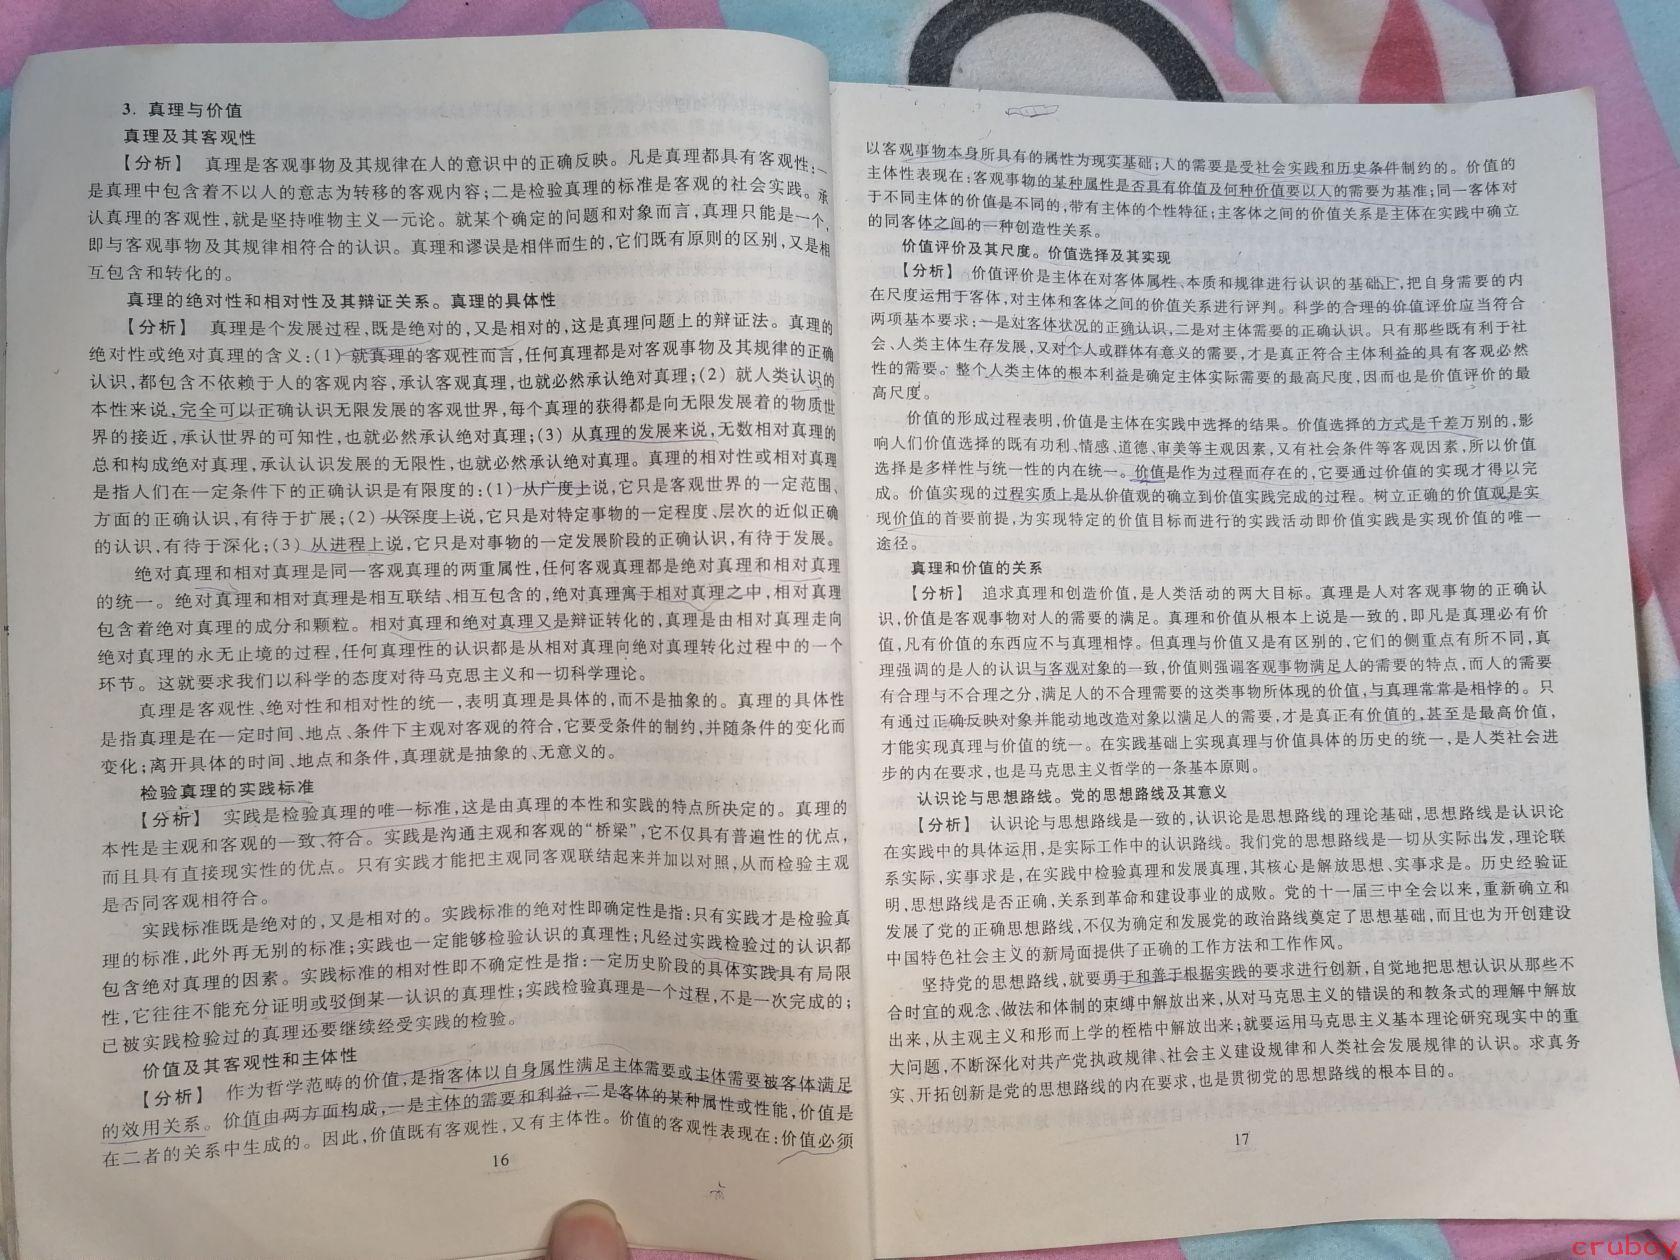 3. 真理与价值
真理及其客观性
【分析】 真理是客观事物及其规律在人的意识中的正确反映。凡是真理都具有客观性;一
是真理中包含着不以人的意志为转移的客观内容;二是检验真理的标准是客观的社会实践。承
认真理的客观性,就是坚持唯物主义一元论。就某个确定的问题和对象而言,真理只能是一个,
即与客观事物及其规律相符合的认识。真理和谬误是相伴而生的,它们既有原则的区别,又是相
互包含和转化的。
真理的绝对性和相对性及其辩证关系。真理的具体性
【分析】 真理是个发展过程,既是绝对的,又是相对的,这是真理问题上的辩证法。真理的
绝对性或绝对真理的含义:(1) 就真理的客观性而言,任何真理都是对客观事物及其规律的正确
认识,都包含不依赖于人的客观内容,承认客观真理,也就必然承认绝对真理;(2) 就人类认识的
本性来说,完全可以正确认识无限发展的客观世界,每个真理的获得都是向无限发展着的物质世
界的接近,承认世界的可知性,也就必然承认绝对真理;(3) 从真理的发展来说,无数相对真理的
总和构成绝对真理,承认认识发展的无限性,也就必然承认绝对真理。真理的相对性或相对真理
是指人们在一定条件下的正确认识是有限度的:(1) 从广度上说,它只是客观世界的一定范围、
方面的正确认识,有待于扩展;(2) 从深度上说,它只是对特定事物的一定程度、层次的近似正确
的认识,有待于深化;(3) 从进程上说,它只是对事物的一定发展阶段的正确认识,有待于发展。
绝对真理和相对真理是同一客观真理的两重属性,任何客观真理都是绝对真理和相对真理
的统一。绝对真理和相对真理是相互联结、相互包含的,绝对真理寓于相对真理之中,相对真理
包含着绝对真理的成分和颗粒。相对真理和绝对真理又是辩证转化的,真理是由相对真理走向
绝对真理的永无止境的过程,任何真理性的认识都是从相对真理向绝对真理转化过程中的一个
环节。这就要求我们以科学的态度对待马克思主义和一切科学理论。
真理是客观性、绝对性和相对性的统一,表明真理是具体的,而不是抽象的。真理的具体性
是指真理是在一定时间、地点、条件下主观对客观的符合,它要受条件的制约,并随条件的变化而
变化;离开具体的时间、地点和条件,真理就是抽象的、无意义的。
检验真理的实践标准
【分析】 实践是检验真理的唯一标准,这是由真理的本性和实践的特点所决定的。真理的
本性是主观和客观的一致、符合。实践是沟通主观和客观的“桥梁”,它不仅具有普遍性的优点,
而且具有直接现实性的优点。只有实践才能把主观同客观联结起来并加以对照,从而检验主观
是否同客观相符合。
实践标准既是绝对的,又是相对的。实践标准的绝对性即确定性是指:只有实践才是检验真
理的标准,此外再无别的标准;实践也一定能够检验认识的真理性;凡经过实践检验过的认识都
包含绝对真理的因素。实践标准的相对性即不确定性是指:一定历史阶段的具体实践具有局限
性,它往往不能充分证明或驳倒某一认识的真理性;实践检验真理是一个过程,不是一次完成的;
已被实践检验过的真理还要继续经受实践的检验。
价值及其客观性和主体性
【分析】 作为哲学范畴的价值,是指客体以自身属性满足主体需要或主体需要被客体满足
的效用关系。价值由两方面构成,一是主体的需要和利益,二是客体的某种属性或性能,价值是
在二者的关系中生成的。因此,价值既有客观性,又有主体性。价值的客观性表现在:价值必须
16
以客观事物本身所具有的属性为现实基础;人的需要是受社会实践和历史条件制约的。价值的
主体性表现在:客观事物的某种属性是否具有价值及何种价值要以人的需要为基准;同一客体对
于不同主体的价值是不同的,带有主体的个性特征;主客体之间的价值关系是主体在实践中确立
的同客体之间的一种创造性关系。
价值评价及其尺度。价值选择及其实现
【分析】 价值评价是主体在对客体属性、本质和规律进行认识的基础上,把自身需要的内
在尺度运用于客体,对主体和客体之间的价值关系进行评判。科学的合理的价值评价应当符合
两项基本要求:一是对客体状况的正确认识,二是对主体需要的正确认识。只有那些既有利于社
会、人类主体生存发展,又对个人或群体有意义的需要,才是真正符合主体利益的具有客观必然
性的需要。整个人类主体的根本利益是确定主体实际需要的最高尺度,因而也是价值评价的最
高尺度。
价值的形成过程表明,价值是主体在实践中选择的结果。价值选择的方式是千差万别的,影
响人们价值选择的既有功利、情感、道德、审美等主观因素,又有社会条件等客观因素,所以价值
选择是多样性与统一性的内在统一。价值是作为过程而存在的,它要通过价值的实现才得以完
成。价值实现的过程实质上是从价值观的确立到价值实践完成的过程。树立正确的价值观是实
现价值的首要前提,为实现特定的价值目标而进行的实践活动即价值实践是实现价值的唯一
途径。
真理和价值的关系
【分析】 追求真理和创造价值,是人类活动的两大目标。真理是人对客观事物的正确认
识,价值是客观事物对人的需要的满足。真理和价值从根本上说是一致的,即凡是真理必有价
值,凡有价值的东西应不与真理相悖。但真理与价值又是有区别的,它们的侧重点有所不同,真
理强调的是人的认识与客观对象的一致,价值则强调客观事物满足人的需要的特点,而人的需要
有合理与不合理之分,满足人的不合理需要的这类事物所体现的价值,与真理常常是相悖的。只
有通过正确反映对象并能动地改造对象以满足人的需要,才是真正有价值的,甚至是最高价值,
才能实现真理与价值的统一。在实践基础上实现真理与价值具体的历史的统一,是人类社会进
步的内在要求,也是马克思主义哲学的一条基本原则。
认识论与思想路线。党的思想路线及其意义
【分析】 认识论与思想路线是一致的,认识论是思想路线的理论基础,思想路线是认识论
在实践中的具体运用,是实际工作中的认识路线。我们党的思想路线是一切从实际出发,理论联
系实际,实事求是,在实践中检验真理和发展真理,其核心是解放思想、实事求是。历史经验证
明,思想路线是否正确,关系到革命和建设事业的成败。党的十一届三中全会以来,重新确立和
发展了党的正确思想路线,不仅为确定和发展党的政治路线奠定了思想基础,而且也为开创建设
中国特色社会主义的新局面提供了正确的工作方法和工作作风。
坚持党的思想路线,就要勇于和善于根据实践的要求进行创新,自觉地把思想认识从那些不
合时宜的观念、做法和体制的束缚中解放出来,从对马克思主义的错误的和教条式的理解中解放
出来,从主观主义和形而上学的桎梏中解放出来;就要运用马克思主义基本理论研究现实中的重
大问题,不断深化对共产党执政规律、社会主义建设规律和人类社会发展规律的认识。求真务
实、开拓创新是党的思想路线的内在要求,也是贯彻党的思想路线的根本目的。
17
cruboy